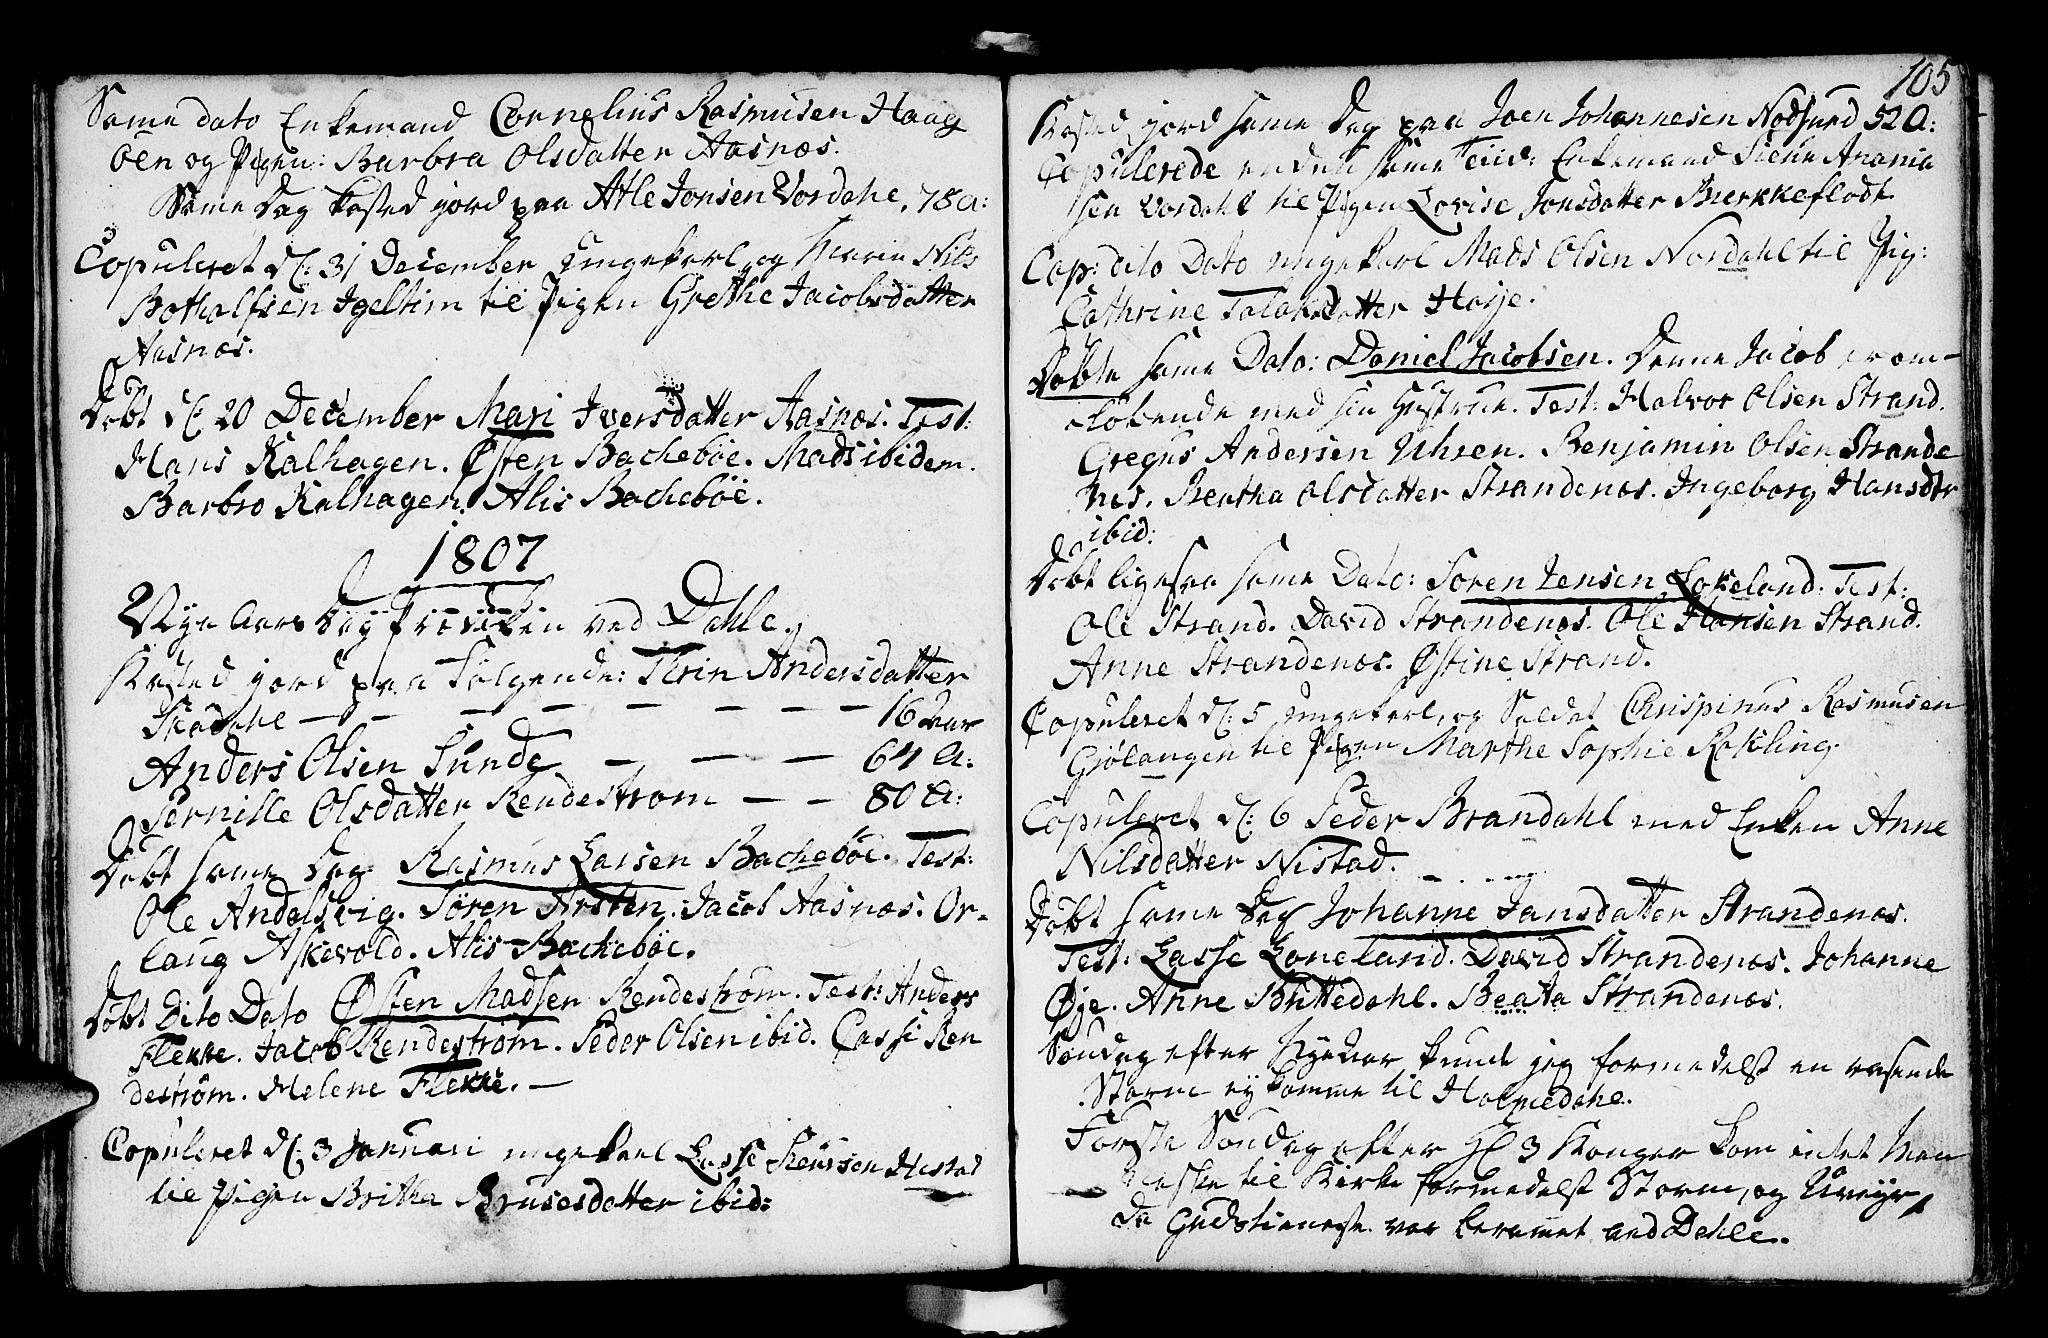 Same dato Enkemand Cornelius Rasmusen Haag
øen og Pigen: Barbra Olsdatter Aasnæs.
Same Dag kasted jord paa Atle Jonsen Vordahe, 78 a:
Copuleret d: 31 December Ungekarl og Marin Nils
Bothalfsen Igeltun til Pigen Grethe Jacobsdatter
Aasnæs.
Døbt d: 20 December Mari Iversdatter Aasnæs. Test:
Hans Kalhagen. Østen Bachebøe. Mads ibidem.
Barbro Kalhagen. Alis Bachebøe.
1807
Nye Aars Dag Prædiken ved Dahle,
Kasted jord paa Følgende: Thrin Andersdatter
16 Aar
Anders Olsen Sunde — — — 64 a:
Pernille Olsdatter Rendestrøm — — 80 a:
Døbt same Dag Rasmus Larsen Bachebøe. Test:
Ole Andalsvig. Søren Arsten. Jacob Aasnæs. Or-
laug Askevold. Alis Bachebøe.
Døbt Dito Dato Østen Madsen Rendestrøm. Test: Anders
Flekke. Jacob Rendestrøm. Peder Olsen ibid. Cassi Ren
destrøm. Helene Flekke. —
Copuleret d: 3 Januari ungekarl Lasse Hestad
til Pigen Britha Brusesdatter ibid:
105
Kasted jord same Dag paa Joen Johannesen Nodsund 52 A:
Copulerede endeel same Tiid: Enkemand Siene Anania
sen Vordahl til Pigen Lovise Jonsdatter Birkkeflodt.
Cop: dito Dato ungekarl Mads Olsen Nordahl til Pig:
Cathrine Talaksdatter Høije.
Døbte same Dato: Daniel Jacobsen. Denne Jacob er om-
løbende med sin Hustrue. Test: Halvor Olsen Strand.
Gregus Andersen Uhren. Benjamin Olsen Strande
næs. Beatha Olsdatter Strandenæs. Ingeborg Hansdtr
ibid:
Døbt ligesaa same Dato: Søren Jensen Løkeland. Test:
Ole Strand. David Strandenæs. Ole Hansen Strand.
Anne Strandenæs. Østine Strand.
Copuleret d: 5 ungekarl, og Soldat Chrispinus Rasmusen
Giølangen til Pigen Marthe Sophie Rekling.
Copuleret d: 6 Peder Brandahl med Enken Anne
Nilsdatter Nistad.
Døbt same Dag Johanne Jansdatter Strandenæs.
Test: Lasse Løneland. David Strandenæs. Johanne
Øje. Anne Brittedahl. Beata Strandenæs.
Søndag efter Nyeaar kunde jeg formedelst en rasende
Storm ej komme til Holmedahe.
Første Søndag efter H 3 Konger kom intet Men
neske til Kirke formedelst Storm, og Uveyr,
da Gudstieneste var beramet ved Dahle.